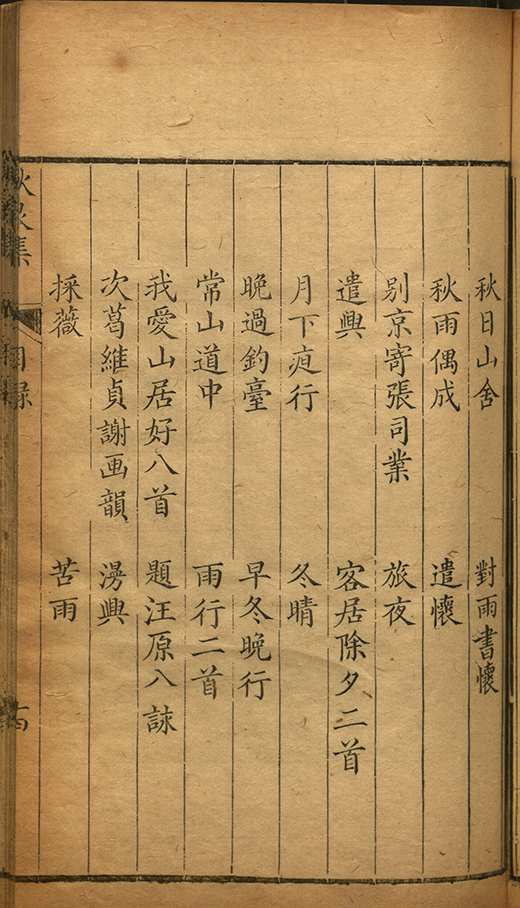 秋日山舍 對雨書懷
秋雨偶成 遣懷
別京寄張司業 旅夜
遣興 客居除夕二首
月下夜行 冬晴
晚過釣臺 早冬晚行
常山道中 雨行二首
我愛山居好八首 題汪原八詠
次葛維貞謝画韻 漫興
採薇 苦雨
集 目錄